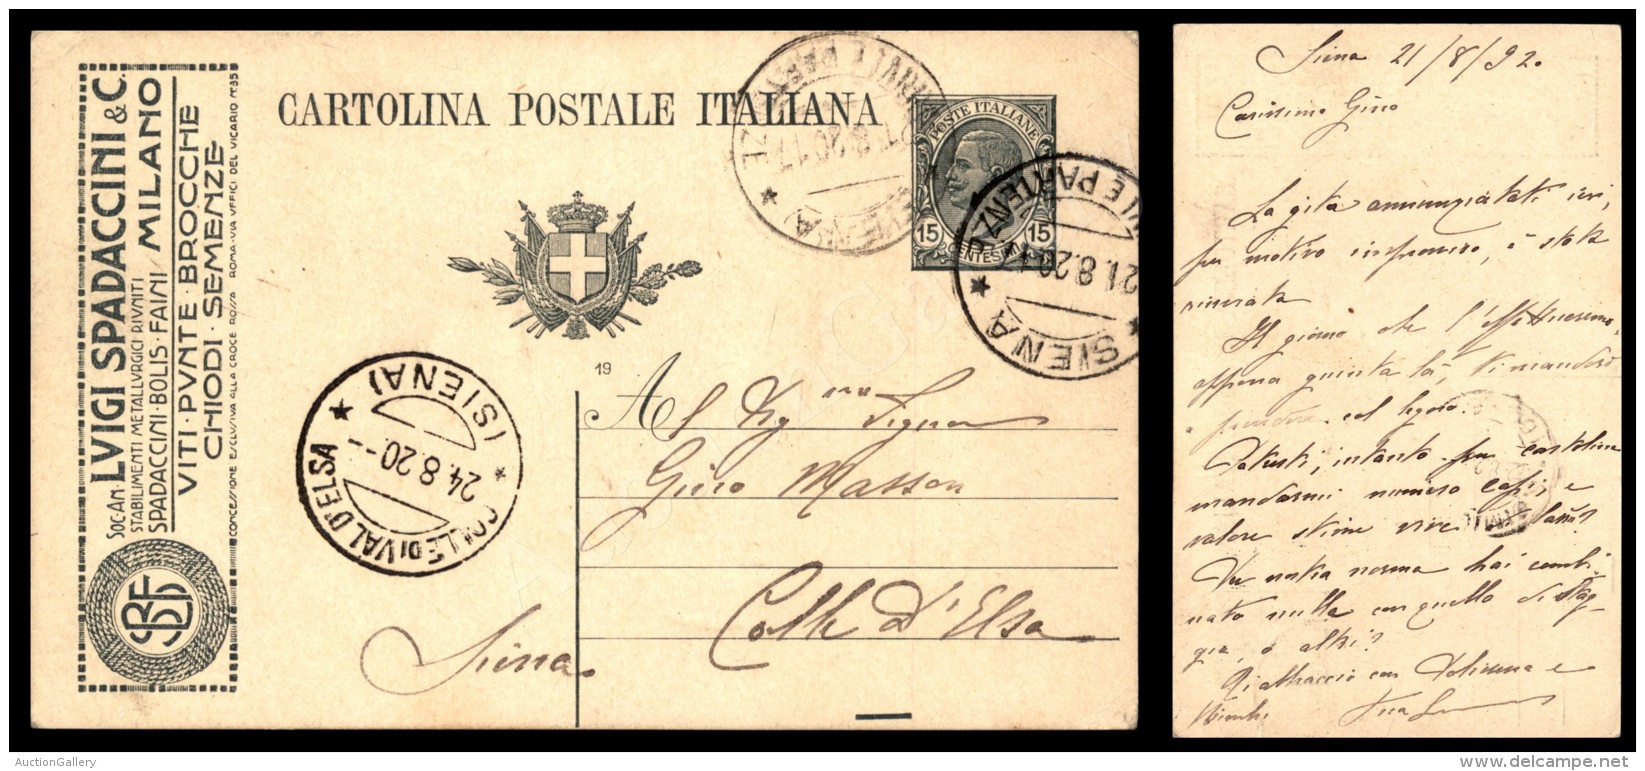 Soc. An. LVIGI SPADACCINI & C.
STABILIMENTI METALLVRGICI RIVNITI
SPADACCINI · BOLIS · FAINI / MILANO
VITI · PVNTE · BROCCHE
CHIODI · SEMENZE
CONCESSIONE ESCLVSIVA ALLA CROCE ROSSA ROMA · VIA VFFICI DEL VICARIO No 35
SBF
CARTOLINA POSTALE ITALIANA
POSTE ITALIANE
15 CENTESIMI 15
SIENA
21.8.20
SIENA
21.8.20
19
COLLE DI VAL D'ELSA
24.8.20
(SIENA)
Al Sig
Gino Masson
Colle D'Elsa
Siena
Siena 21/8/920
Carissimo Gino
La gita annunziatati ieri,
per motivo improvviso, è stata
rinviata
Il giorno che l'effettueremo,
appena giunta là, ti manderò
a prendere col legno.
intanto per cartolina
mandarmi numero capi e
valore stime vive
Per natia norma hai combi-
nato nulla con quello di Stag-
gia, o altri?
Ti abbraccio con e
AuctionGallery
www.delcampe.net